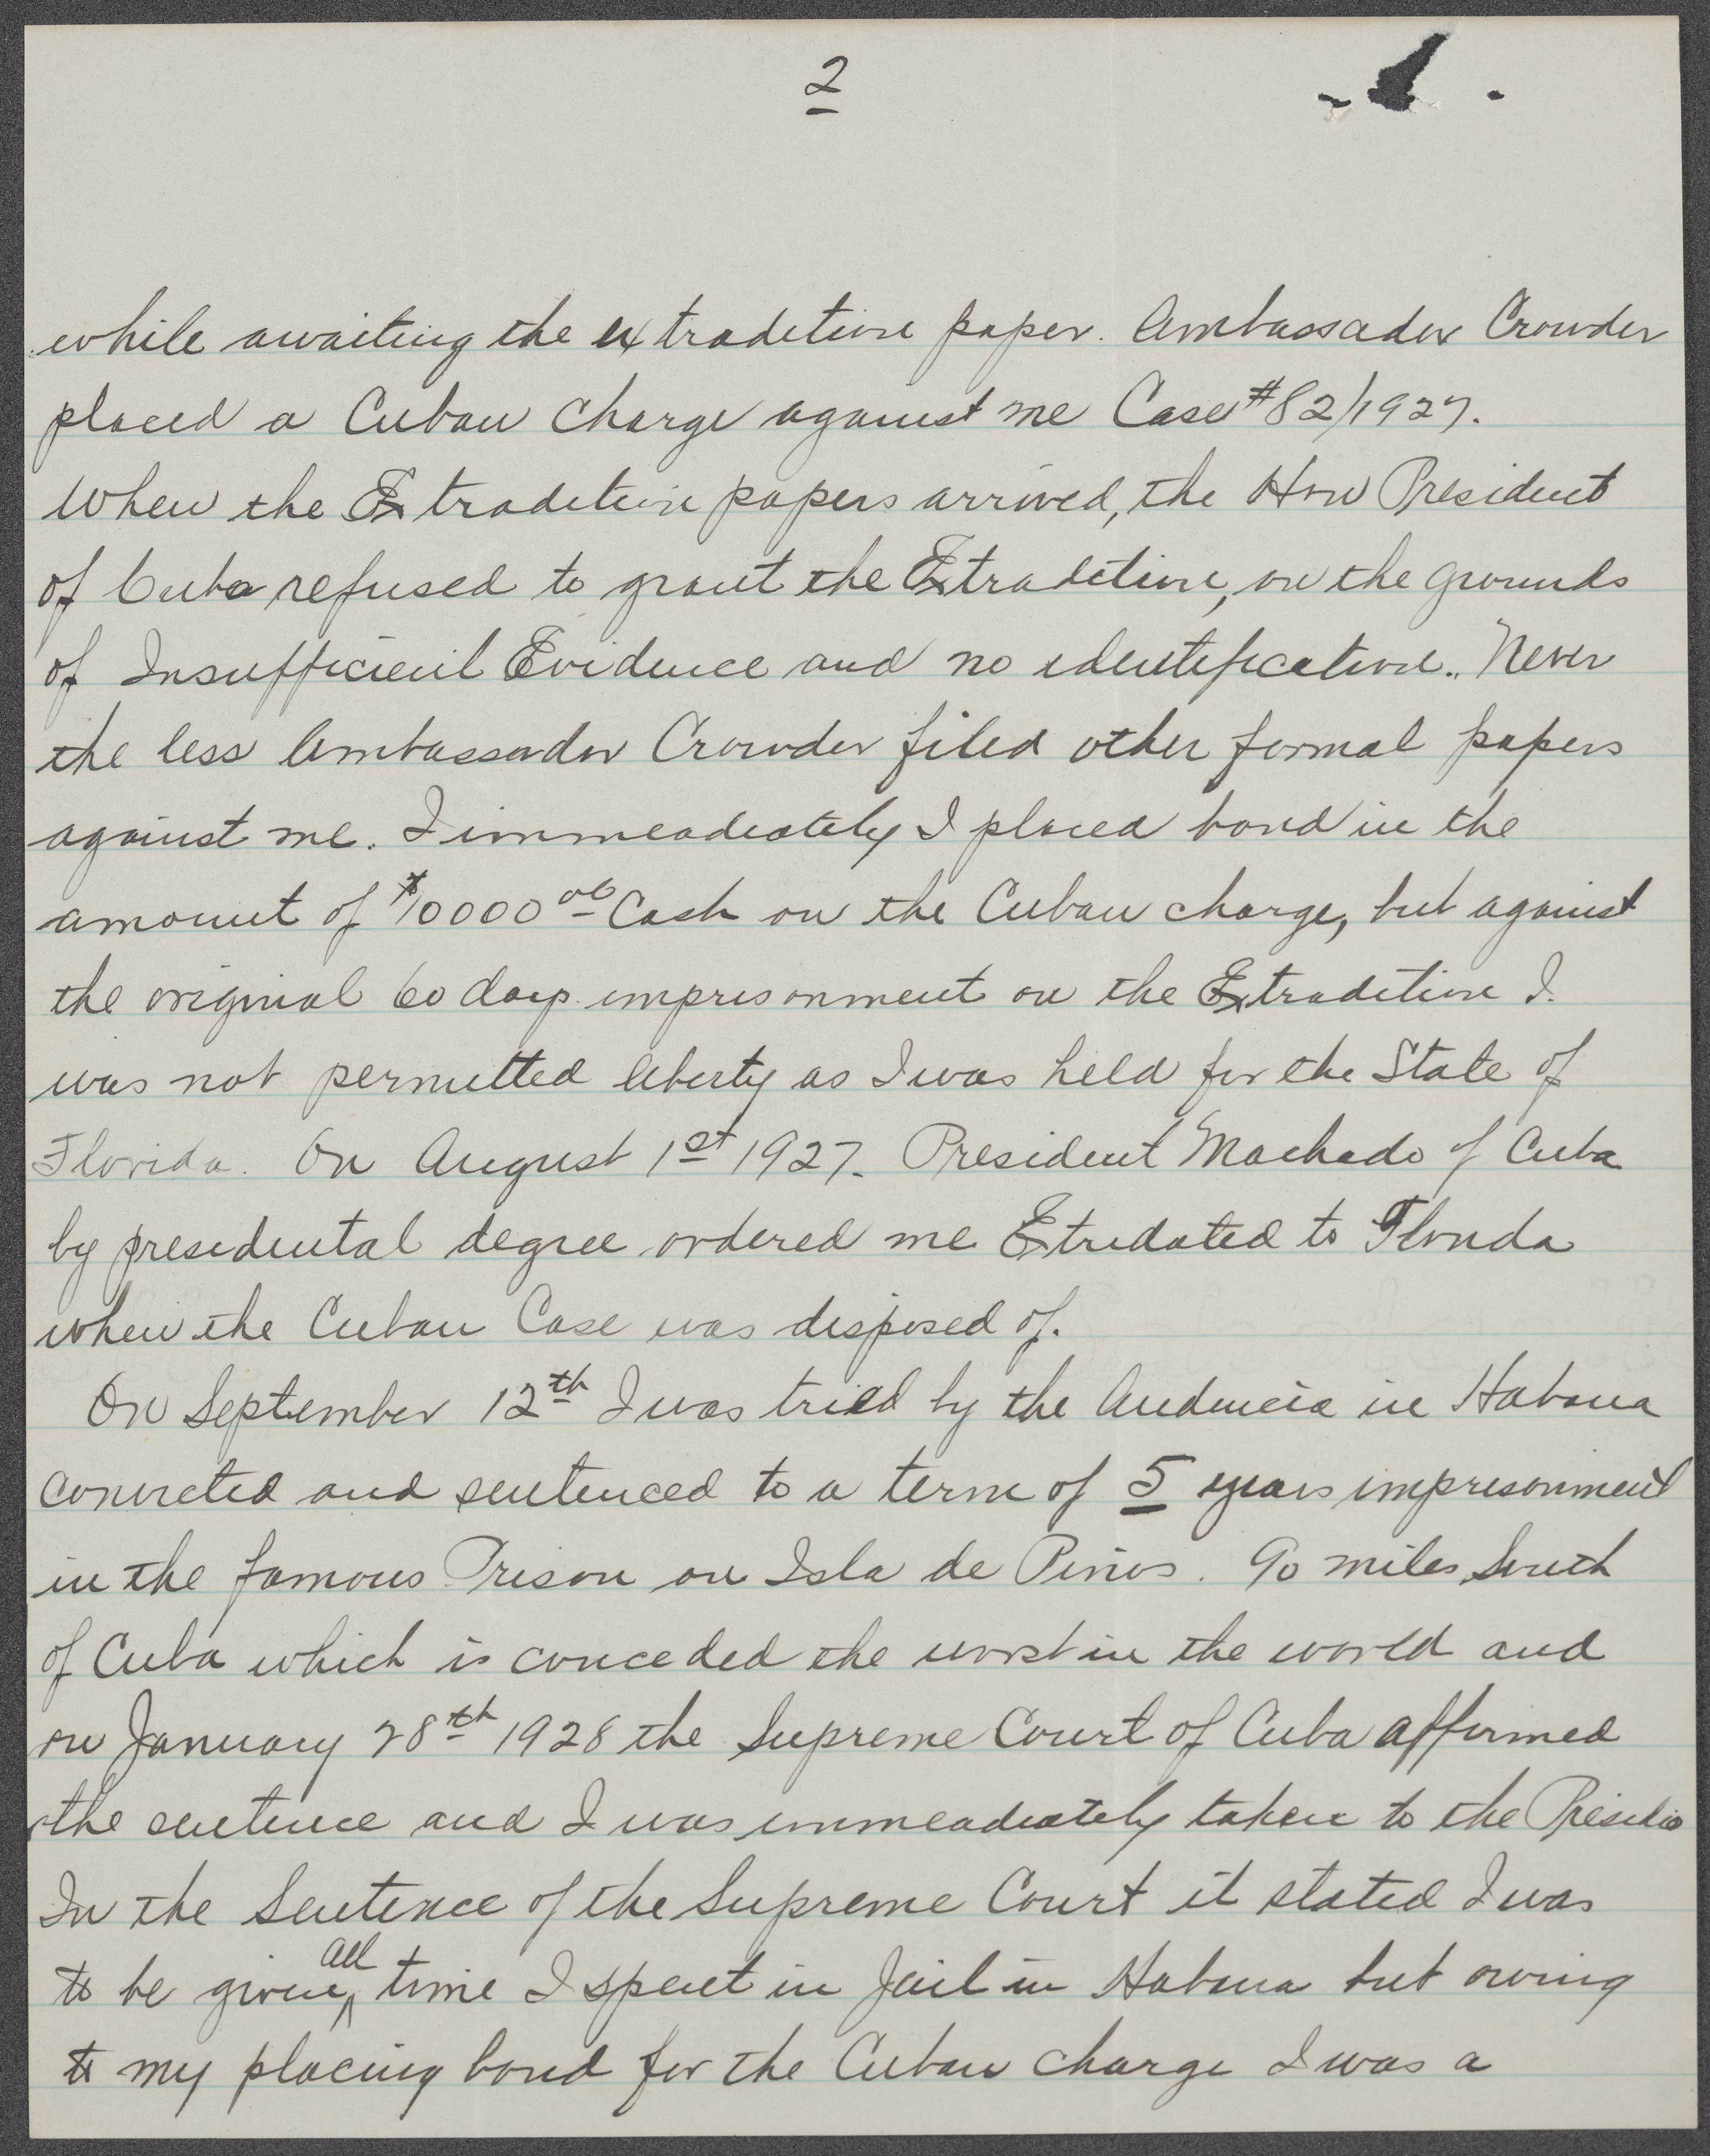 2
while awaiting the extradition paper. Ambassador Crowder
placed a Cuban Charge against me Case #82/1927.
When the Extradition papers arrived, the Hon President
of Cuba refused to grant the Extradition, on the grounds
of Insufficient Evidence and no identification. Never
the less Ambassador Crowder filed other formal papers
against me. I immeadiately I placed bond in the
amount of $10000 00 Cash on the Cuban charge, but against
the original 60 days imprisonment on the Extradition I
was not permitted liberty as I was held for the State of
Florida. On August 1st 1927. President Machado of Cuba
by presidental degree ordered me Extradated to Florida
when the Cuban Case was disposed of.
On September 12th I was tried by the Audencia in Habana
convicted and sentenced to a term of 5 years imprisonment
in the famous Prison on Isla de Pinos. 90 miles South
of Cuba which is conceded the worst in the world and
on January 28th 1928 the Supreme Court of Cuba affirmed
the sentence and I was immeadiately taken to the Presidio
In the Sentence of the Supreme Court it stated I was
to be given all time I spent in Jail in Habana but owing
to my placing bond for the Cuban charge I was a